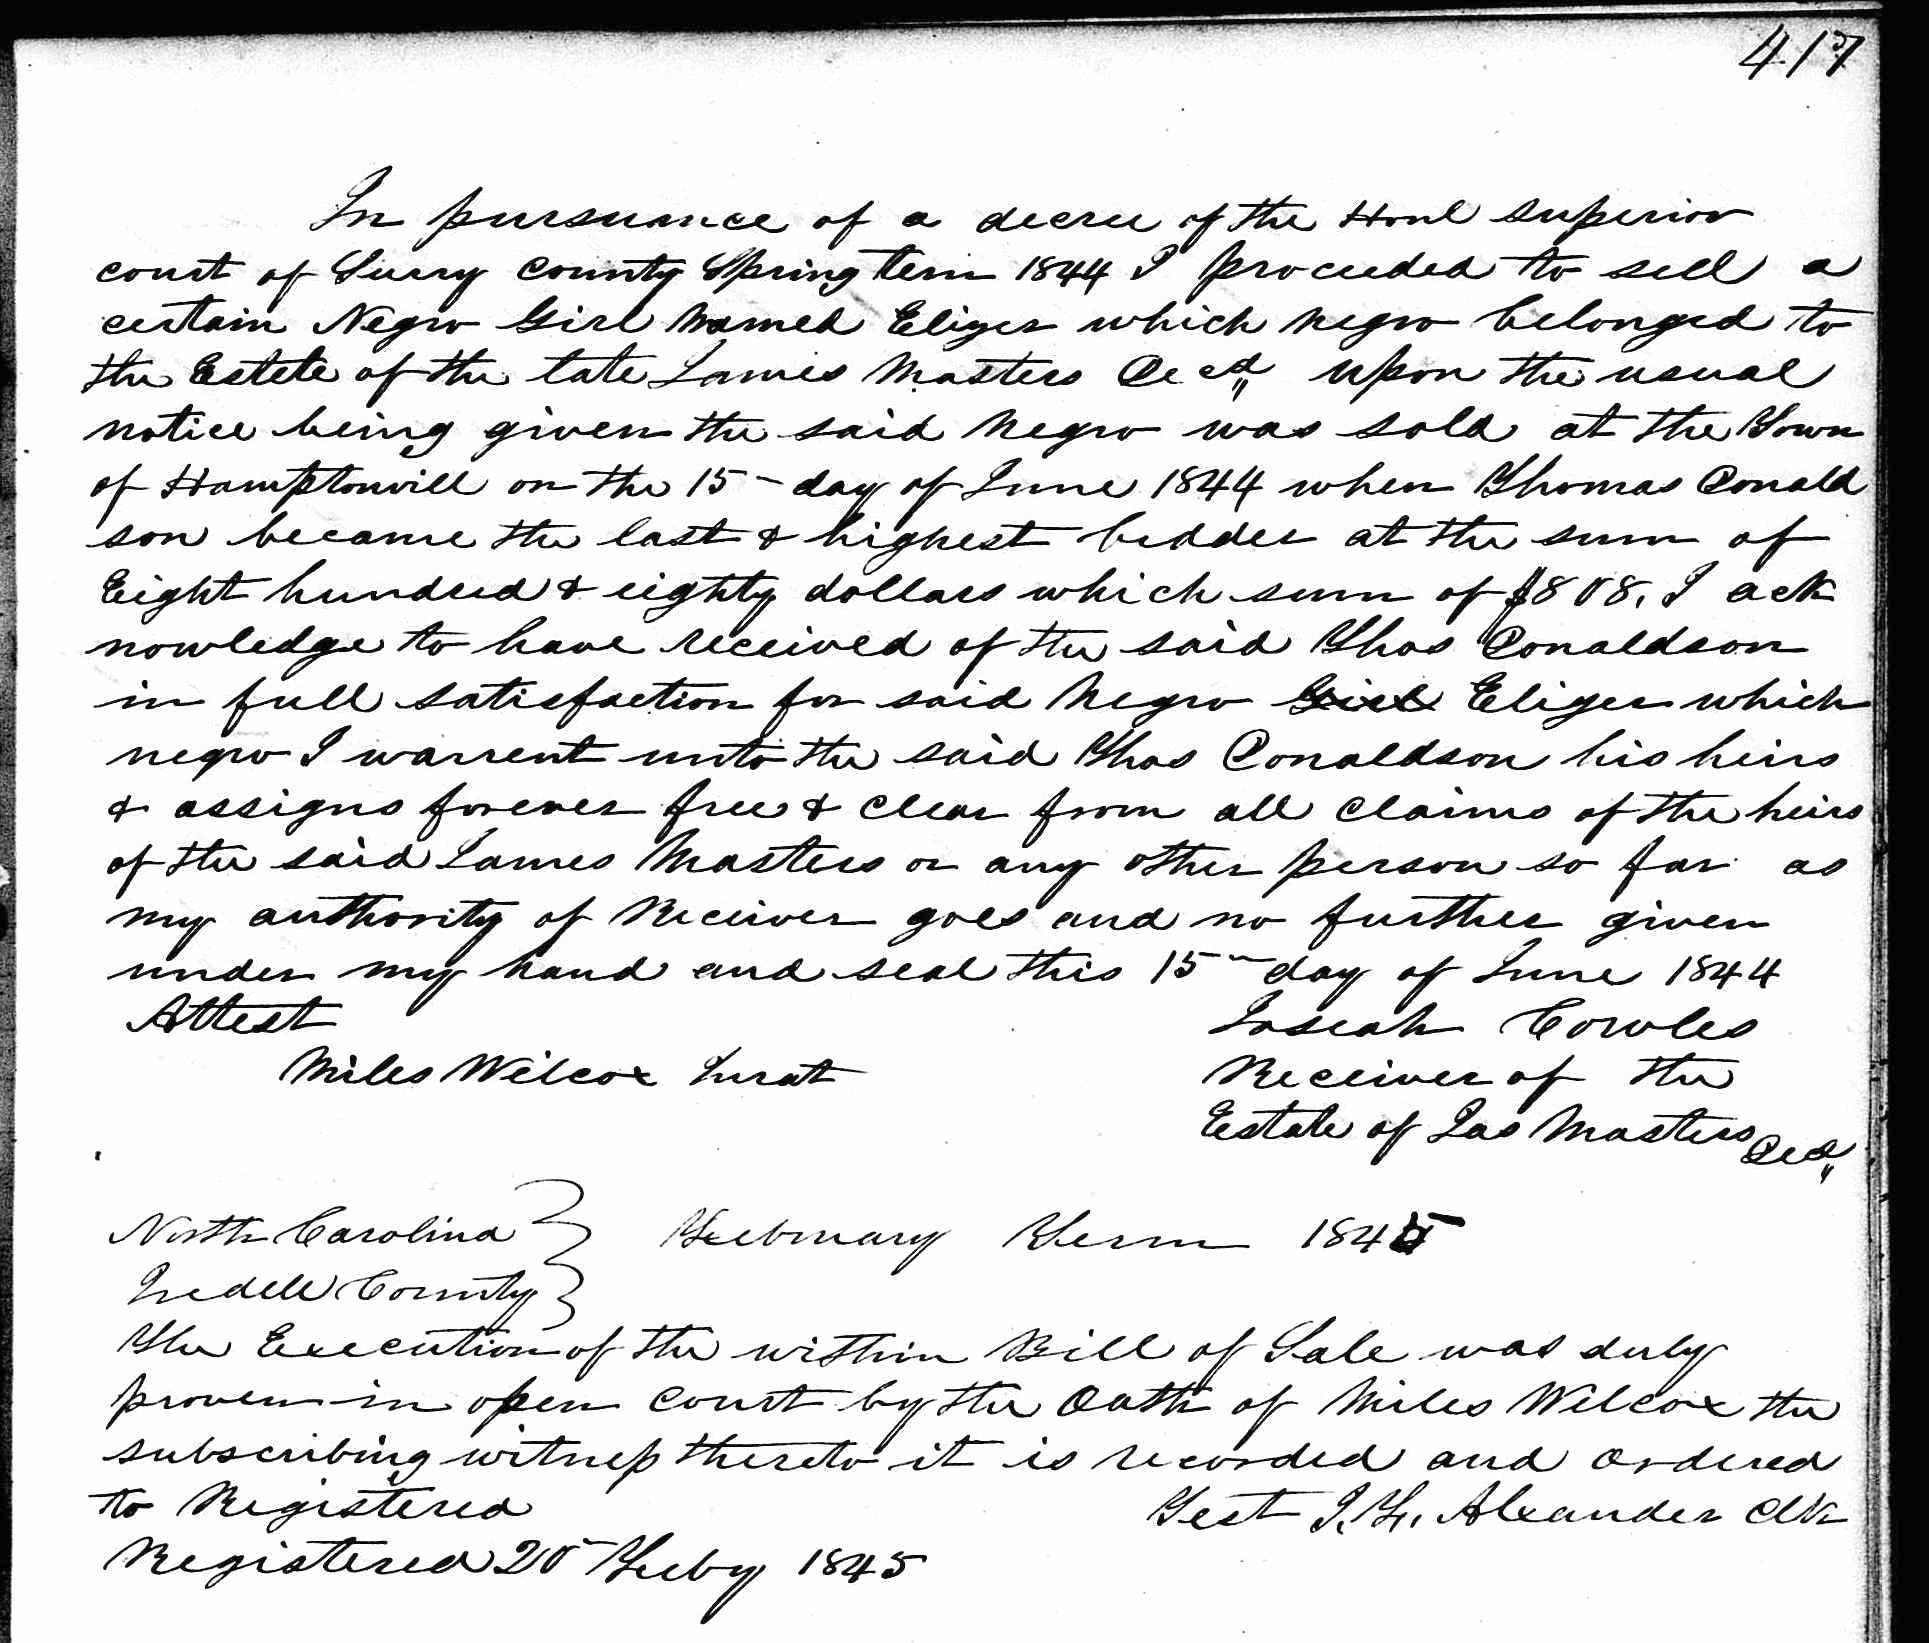 417
In pursuance of a decree of the Honl superior
court of Surry County Spring term 1844 I proceeded to sell a
certain Negro Girl Named Elizer which negro belonged to
the Estete of the late James Masters Decd upon the usual
notice being given the said Negro was sold at the Town
of Hamptonvill on the 15 day of June 1844 when Thomas Donald
son became the last & highest bidder at the sum of
Eight hundred & eighty dollars which sum of $808, I ack
nowledge to have received of the said Thos Donaldson
in full satisfaction for said Negro Girl Elizer which
negro I warrent unto the said Thos Donaldson his heirs
& assigns forever free & clear from all claims of the heirs
of the said James Masters or any other person so far as
my authority of Receiver goes and no further given
under my hand and seal this 15th day of June 1844
Attest Josiah Cowles
Miles Wilcox Jurat Receiver of the
Estate of Jas Masters Decd
North Carolina } February Term 1845
Iredell County }
The Execution of the within Bill of Sale was duly
proven in open court by the Oath of Miles Wilcox the
subscribing witness thereto it is recorded and ordered
to Registered Test J. F. Alexander Clk
Registered 20 Feby 1845